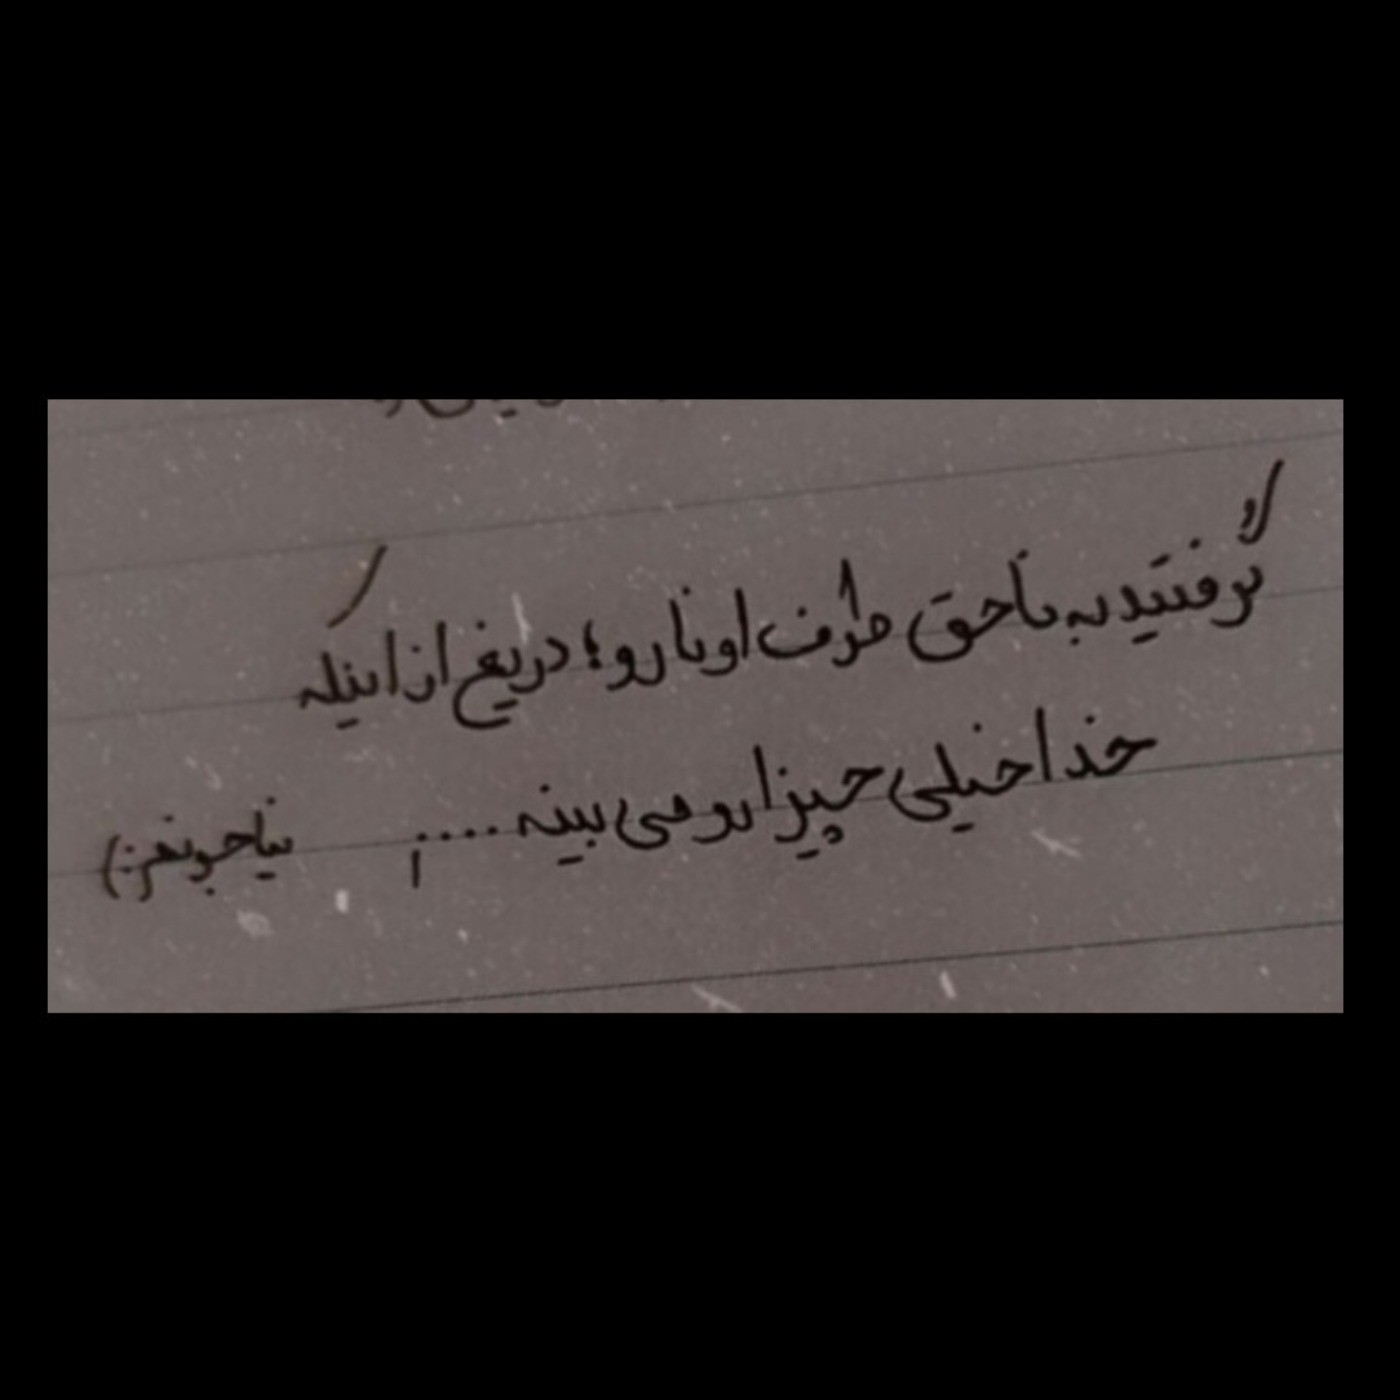 گرفتید به ناحق طرف اونا رو؛ دریغ از اینکه
خدا خیلی چیزا رو می بینه....!